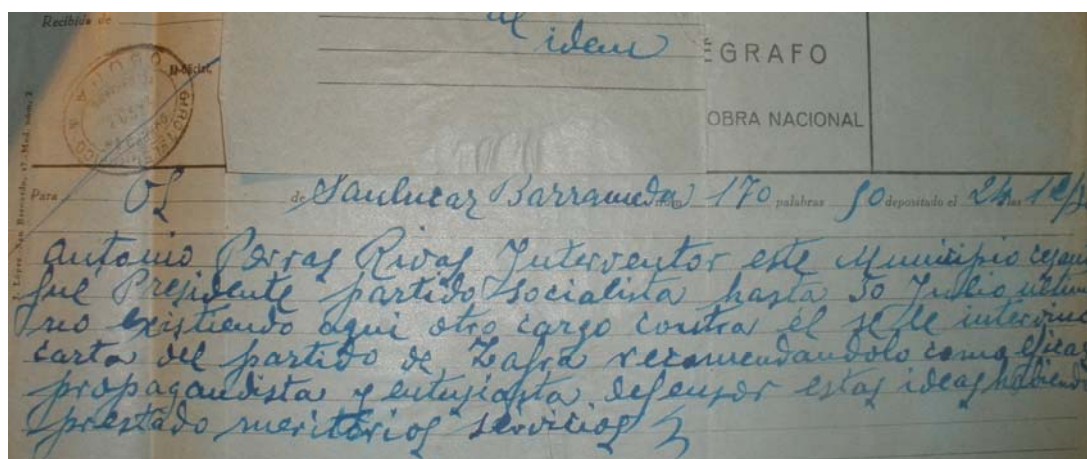 Recibida de
al idem
El Oficial,
ÉGRAFO
OBRA NACIONAL
Para OS de Sanlucar Barrameda núm 170 palabras 50 depositado el 24 a las 12/
Antonio Porras Rivas Interventor este Municipio cesan
fue Presidente partido socialista hasta 30 Julio ultim
no existiendo aqui otro cargo contra él se le intervino
carta del partido de Zafra recomendandolo como eficaz
propagandista y entusiasta defensor estas ideas habiendo
prestado meritorios servicios